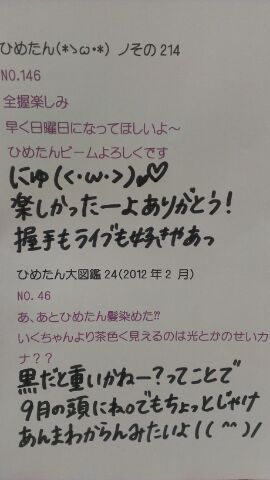 ひめたん(*>ω•*) ノその214
NO.146
全握楽しみ
早く日曜日になってほしいよ～
ひめたんビームよろしくです
にゅ(<・ω・>)♡
楽しかったーよありがとう!
握手もライブも好きやあっ
ひめたん大図鑑24(2012年2月)
NO.46
あ、あとひめたん髪染めた!?
いくちゃんより茶色く見えるのは光とかのせいカ
ナ??
黒だと重いかねー?ってことで
9月の頭にね。でもちょっとじゃけ
あんまわからんみたいよ!(^^)/